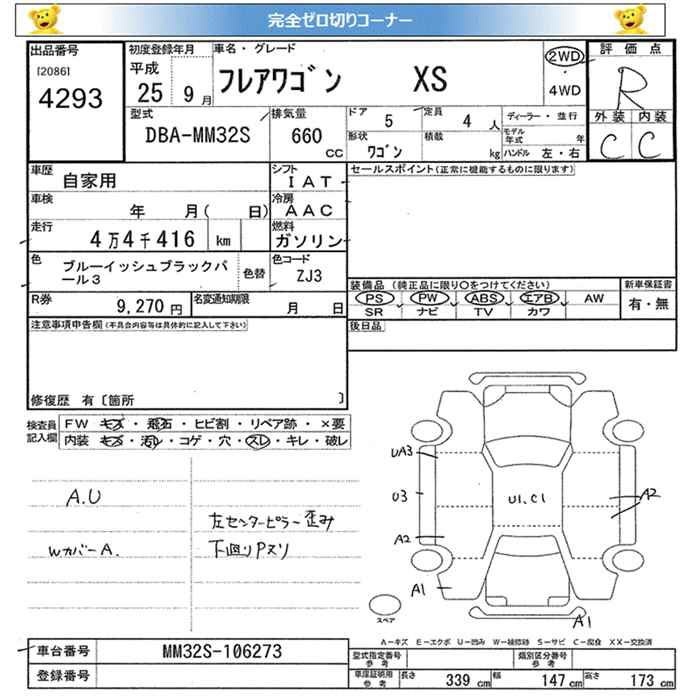 完全ゼロ切りコーナー
出品番号
[2086]
4293
初度登録年月
平成
25 9月
車名・グレード
フレアワゴン XS
2WD
・
4WD
評価点
R
外装 内装
C C
型式
DBA-MM32S
排気量
660
CC
ドア
5
定員
4 人
形状
ワゴン
積載
kg
ディーラー・並行
モデル
年式 年
ハンドル 左・右
車歴
自家用
シフト
IAT
車検
年 月( 日)
冷房
AAC
走行
4万4千416 km
燃料
ガソリン
色
ブルーイッシュブラックパ
ール3
色替
色コード
ZJ3
R券
9,270 円
名変通知期限
月 日
セールスポイント(正常に機能するものに限ります)
装備品 (純正品に限り○をつけてください)
新車保証書
PS PW ABS エアB AW
有・無
SR ナビ TV カワ
後日品
注意事項申告欄(不具合内容等は具体的に記入して下さい)
修復歴 有〔箇所 〕
検査員
記入欄
FW キズ・飛石・ヒビ割・リペア跡・×要
内装 キズ・汚レ・コゲ・穴・スレ・キレ・破レ
A.U
Wカバー A.
左センターピラー歪み
下回りPスリ
UA3
U3
A2
A1
U1.C1
A2
A1
スペア
A-キズ E-エクボ U-凹み W-補修跡 S-サビ C-腐食 XX-交換済
車台番号
MM32S-106273
登録番号
型式指定番号
参考
類別区分番号
参考
車庫証明用
参考
長さ 339 cm 幅 147 cm 高さ 173 cm